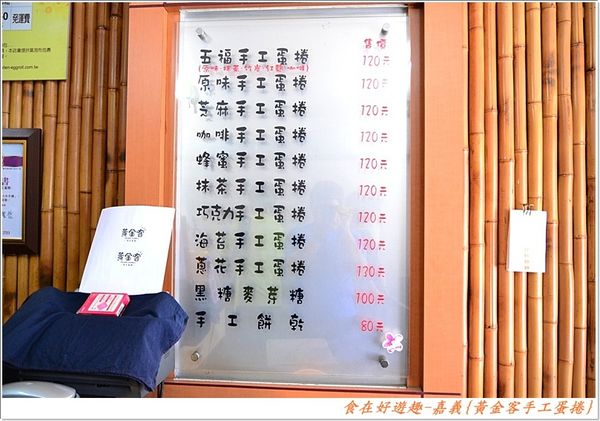 免運費
售價
五福手工蛋捲 120元
(原味.抹茶.竹炭.紅麴.咖啡)
原味手工蛋捲 120元
芝麻手工蛋捲 120元
咖啡手工蛋捲 120元
蜂蜜手工蛋捲 120元
抹茶手工蛋捲 120元
巧克力手工蛋捲 120元
海苔手工蛋捲 120元
蔥花手工蛋捲 130元
黑糖麥芽糖 100元
手工餅乾 80元
黃金客
黃金客
食在好遊趣-嘉義{黃金客手工蛋捲}